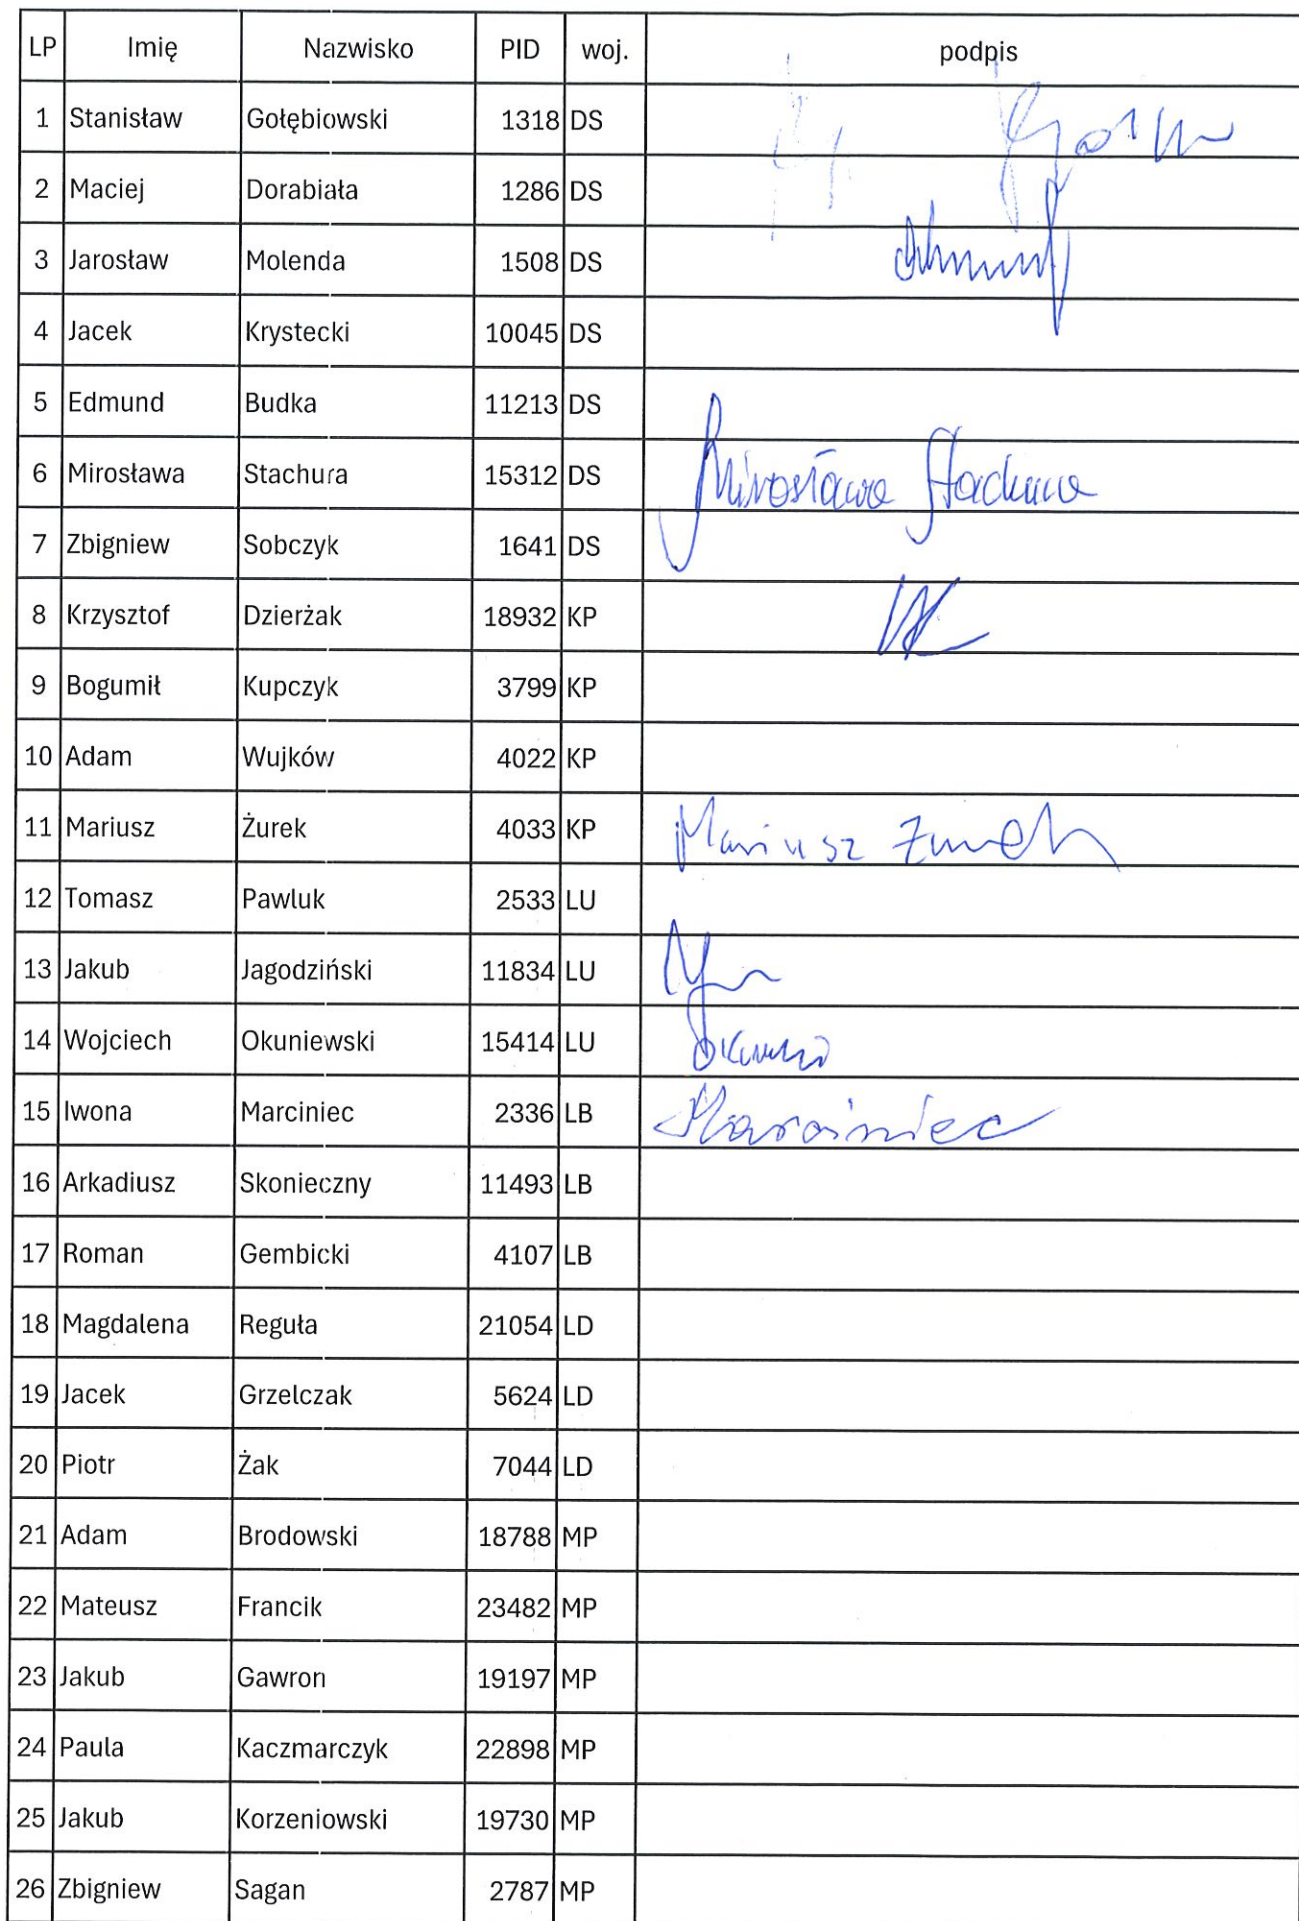 LP Imię Nazwisko PID woj. podpis
1 Stanisław Gołębiowski 1318 DS
2 Maciej Dorabiała 1286 DS
3 Jarosław Molenda 1508 DS
4 Jacek Krystecki 10045 DS
5 Edmund Budka 11213 DS
6 Mirosława Stachura 15312 DS Mirosława Stachura
7 Zbigniew Sobczyk 1641 DS
8 Krzysztof Dzierżak 18932 KP
9 Bogumił Kupczyk 3799 KP
10 Adam Wujków 4022 KP
11 Mariusz Żurek 4033 KP Mariusz Żurek
12 Tomasz Pawluk 2533 LU
13 Jakub Jagodziński 11834 LU
14 Wojciech Okuniewski 15414 LU
15 Iwona Marciniec 2336 LB Marciniec
16 Arkadiusz Skonieczny 11493 LB
17 Roman Gembicki 4107 LB
18 Magdalena Reguła 21054 LD
19 Jacek Grzelczak 5624 LD
20 Piotr Żak 7044 LD
21 Adam Brodowski 18788 MP
22 Mateusz Francik 23482 MP
23 Jakub Gawron 19197 MP
24 Paula Kaczmarczyk 22898 MP
25 Jakub Korzeniowski 19730 MP
26 Zbigniew Sagan 2787 MP